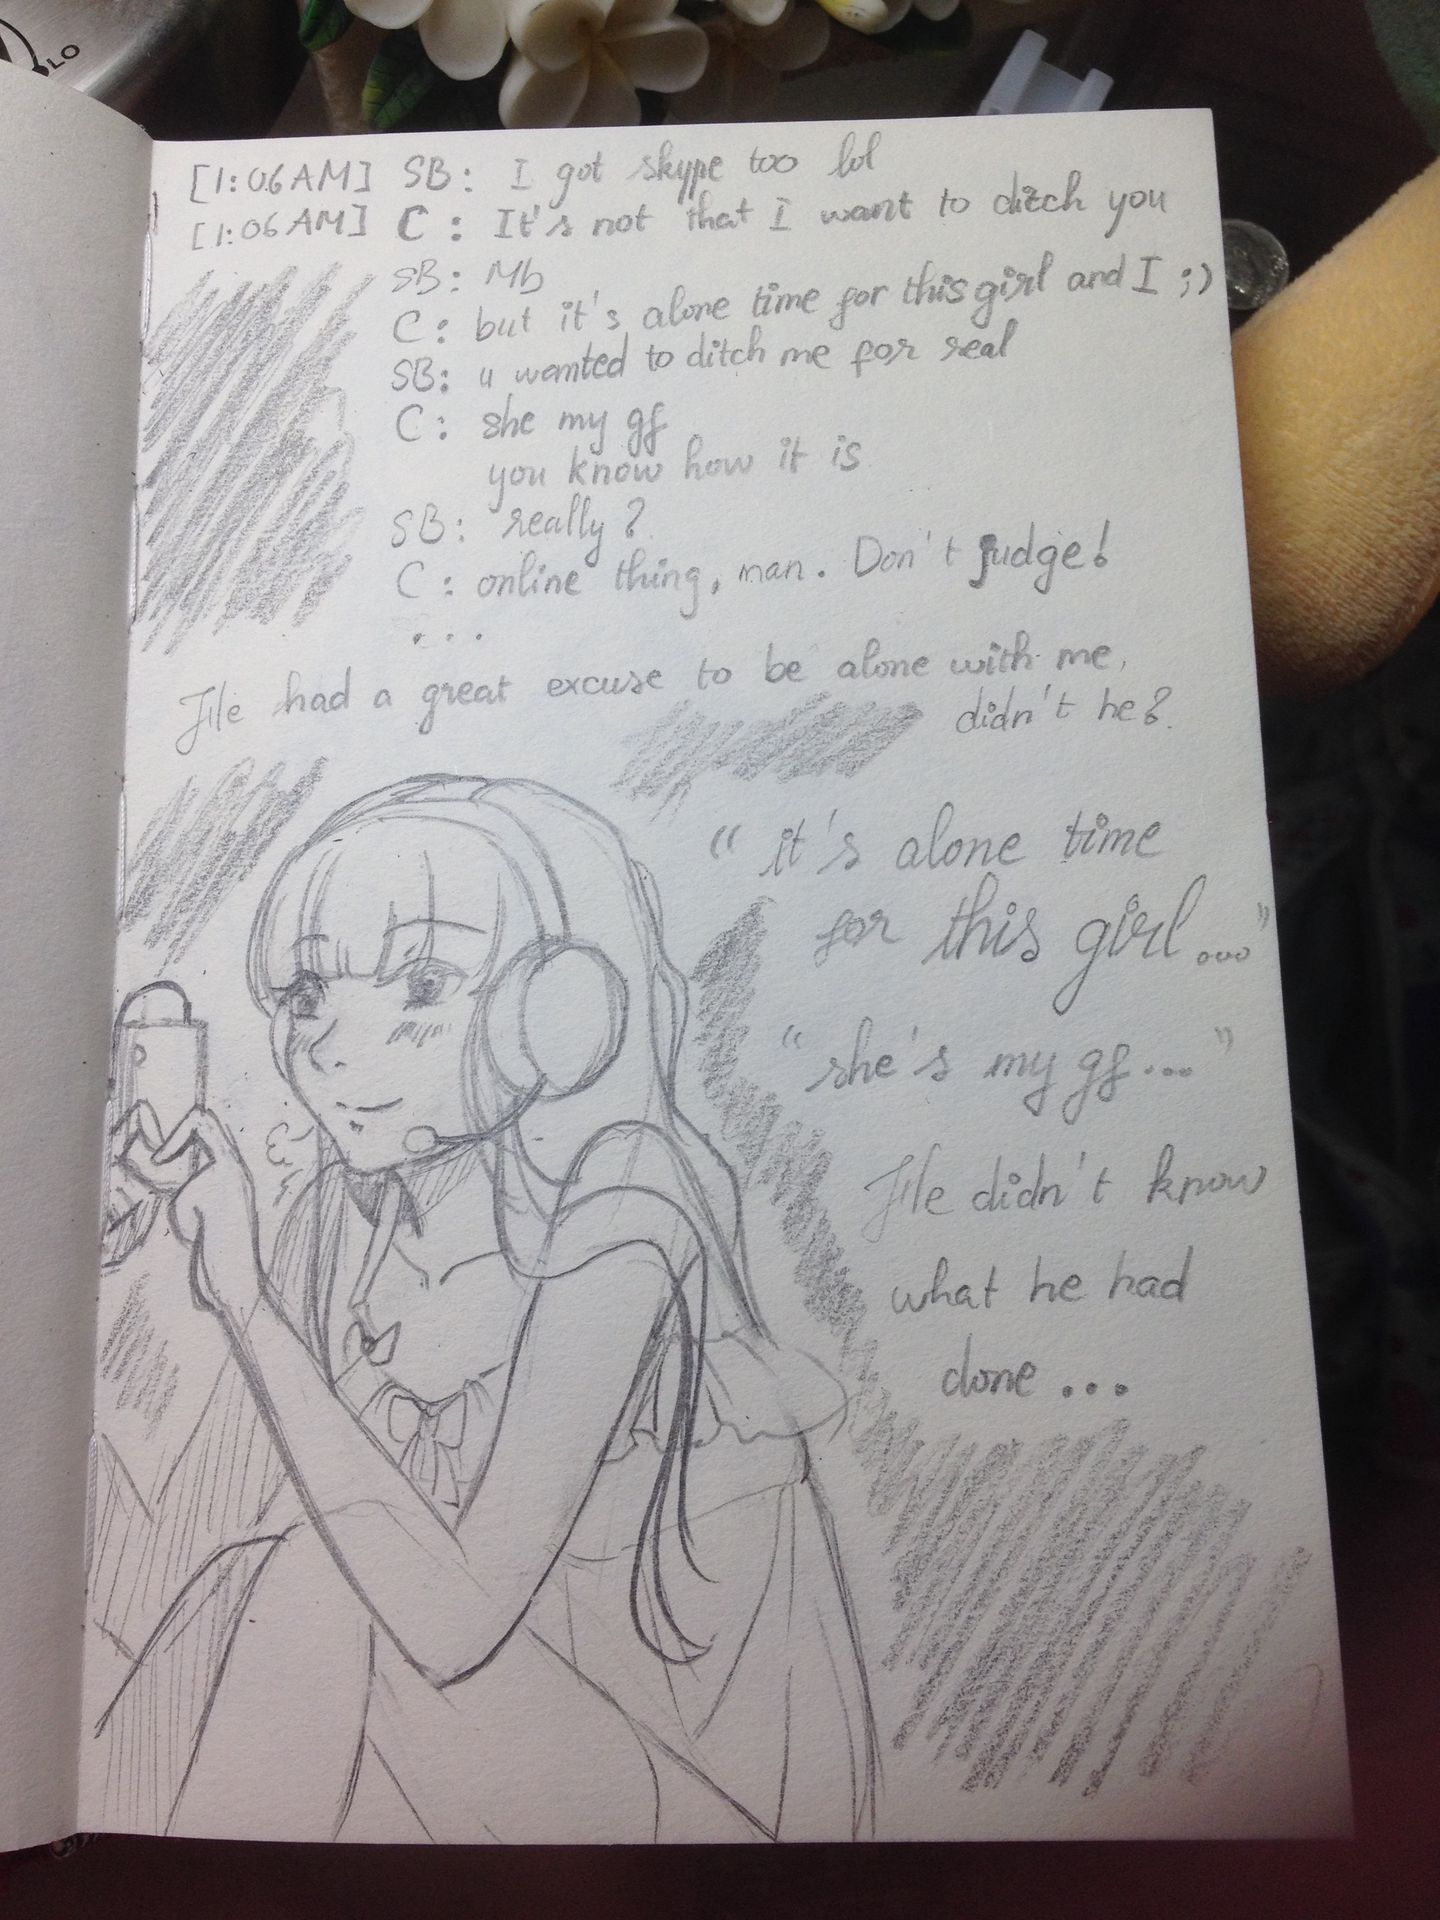 LO
[1:06AM] SB: I got skype too lol
[1:06AM] C: It's not that I want to ditch you
SB: Mb
C: but it's alone time for this girl and I ;)
SB: u wanted to ditch me for real
C: she my gf
you know how it is
SB: really?
C: online thing, man. Don't judge!
...
He had a great excuse to be alone with me,
didn't he?
"it's alone time
for this girl..."
"she's my gf..."
He didn't know
what he had
done...